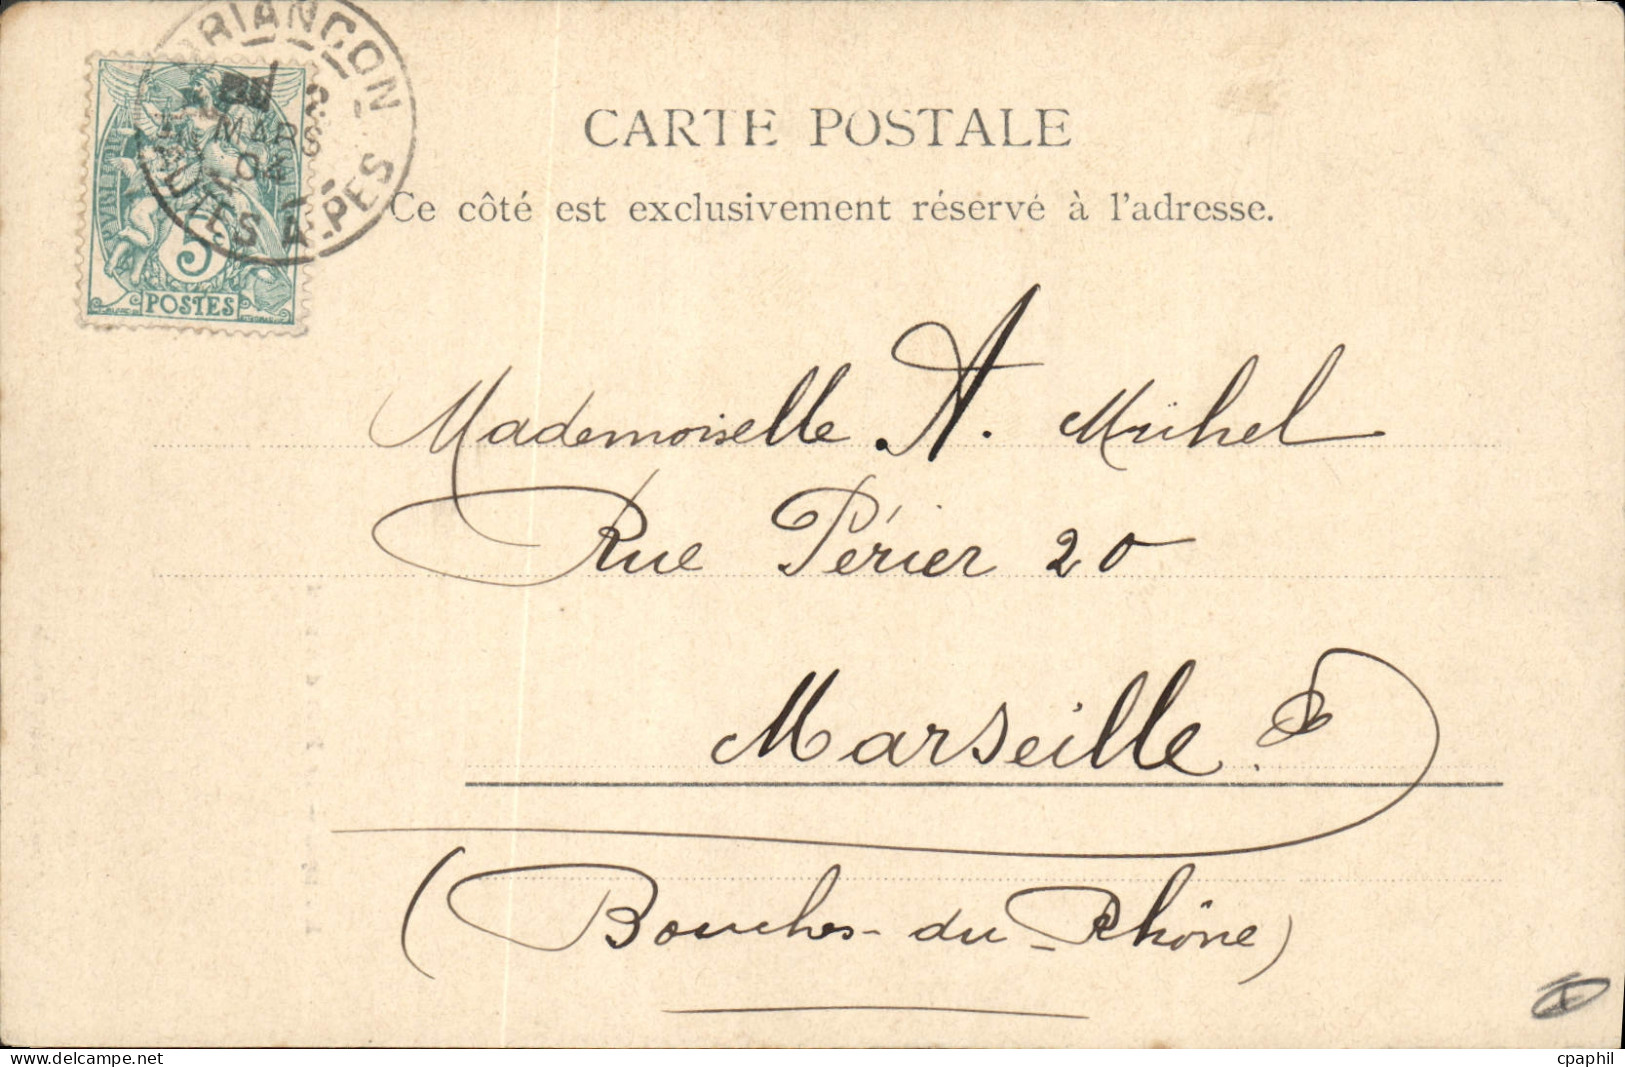 BRIANCON
MARS
04
HTES ALPES
5
POSTES
CARTE POSTALE
Ce côté est exclusivement réservé à l'adresse.
Mademoiselle A. Michel
Rue Périer 20
Marseille
(Bouches-du-Rhône)
www.delcampe.net
cpaphil